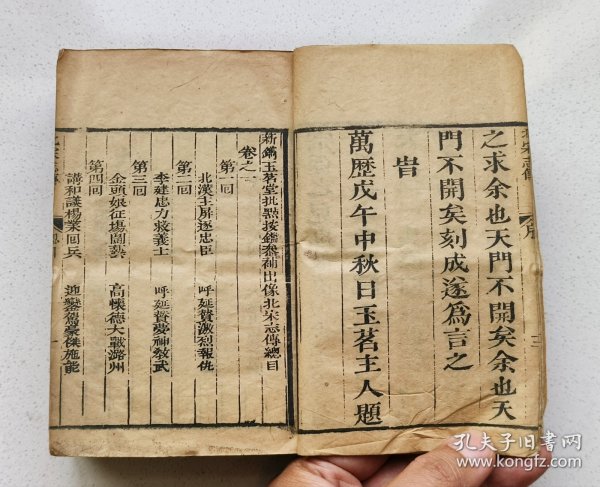 之求余也天門不開矣余也天
門不開矣刻成遂為言之
旹
萬歷戊午中秋日玉茗主人題
序
三
新鐫玉茗堂批點按鑑叅補出像北宋志傳總目
卷之一
第一回
北漢主屏逐忠臣 呼延贊激烈報仇
第二回
李建忠力救義士 呼延贊夢神教武
第三回
金頭娘征塲鬬藝 高懷德大戰潞州
第四回
講和議楊業囘兵 迎鑾駕豪傑施能
孔夫子旧书网
www.kongfz.com